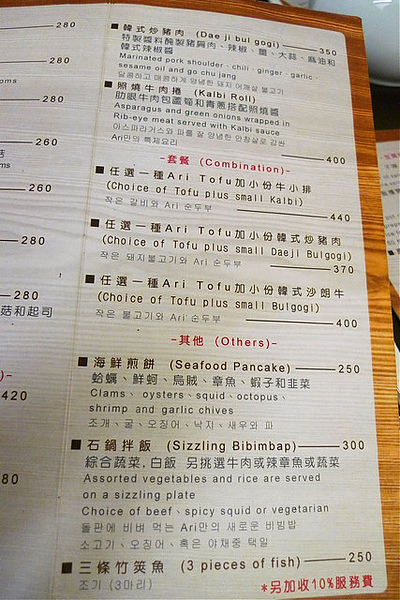 280
280
260
260
280
280
菇和起司
420
80
■ 韓式炒豬肉 (Dae ji bul gogi) 350
特製醬料醃製豬肩肉、辣椒、薑、大蒜、麻油和
韓式辣椒醬
Marinated pork shoulder、chili、ginger、garlic、
sesame oil and go chu jang
달콤하고 매콤하게 양념한 돼지 어깨살 불고기
■ 照燒牛肉捲 (Kalbi Roll)
肋眼牛肉包蘆筍和青蔥搭配照燒醬
Asparagus and green onions wrapped in
Rib-eye meat served with Kalbi sauce
아스파라거스와 파를 잘 양념한 안창살로 감싼
Ari만의 특제요리 400
-套餐 (Combination)-
■ 任選一種Ari Tofu加小份牛小排
(Choice of Tofu plus small Kalbi)
작은 갈비와 Ari 순두부 440
■ 任選一種Ari Tofu加小份韓式炒豬肉
(Choice of Tofu plus small Daeji Bulgogi)
작은 돼지불고기와 Ari 순두부 370
■ 任選一種Ari Tofu加小份韓式沙朗牛
(Choice of Tofu plus small Bulgogi)
작은 불고기와 Ari 순두부 400
-其他 (Others)-
■ 海鮮煎餅 (Seafood Pancake) 250
蛤蠣、鮮蚵、烏賊、章魚、蝦子和韭菜
Clams、oysters、squid、octopus、
shrimp and garlic chives
조개、굴、오징어、낙지、새우와 파
■ 石鍋拌飯 (Sizzling Bibimbap) 300
綜合蔬菜,白飯 另挑選牛肉或辣章魚或蔬菜
Assorted vegetables and rice are served
on a sizzling plate
Choice of beef、spicy squid or vegetarian
돌판에 비벼 먹는 Ari만의 새로운 비빔밥
소고기、오징어、혹은 야채중 택일
■ 三條竹筴魚 (3 pieces of fish) 250
조기 (3마리)
*另加收10%服務費